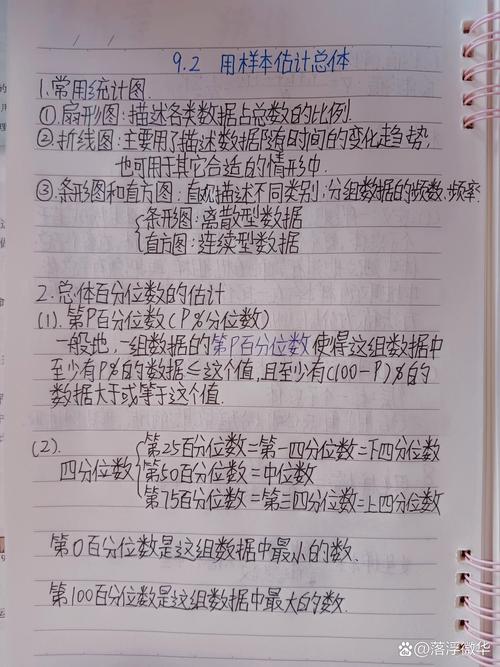 9.2 用样本估计总体
1.常用统计图.
①.扇形图:描述各类数据占总数的比例.
②.折线图:主要用了描述数据随时间的变化趋势,
也可用于其它合适的情形中.
③.条形图和直方图:直观描述不同类别,分组数据的频数、频率.
条形图:离散型数据
直方图:连续型数据
2.总体百分位数的估计
(1).第P百分位数(P%分位数)
一般地,一组数据的第P百分位数使得这组数据中
至少有P%的数据≤这个值,且至少有(100-P)%的
数据大于或等于这个值.
(2).
四分位数
第25百分位数=第一四分位数=下四分位数
第50百分位数=中位数
第75百分位数=第三四分位数=上四分位数
第0百分位数是这组数据中最小的数.
第100百分位数是这组数据中最大的数.
@落浮微华